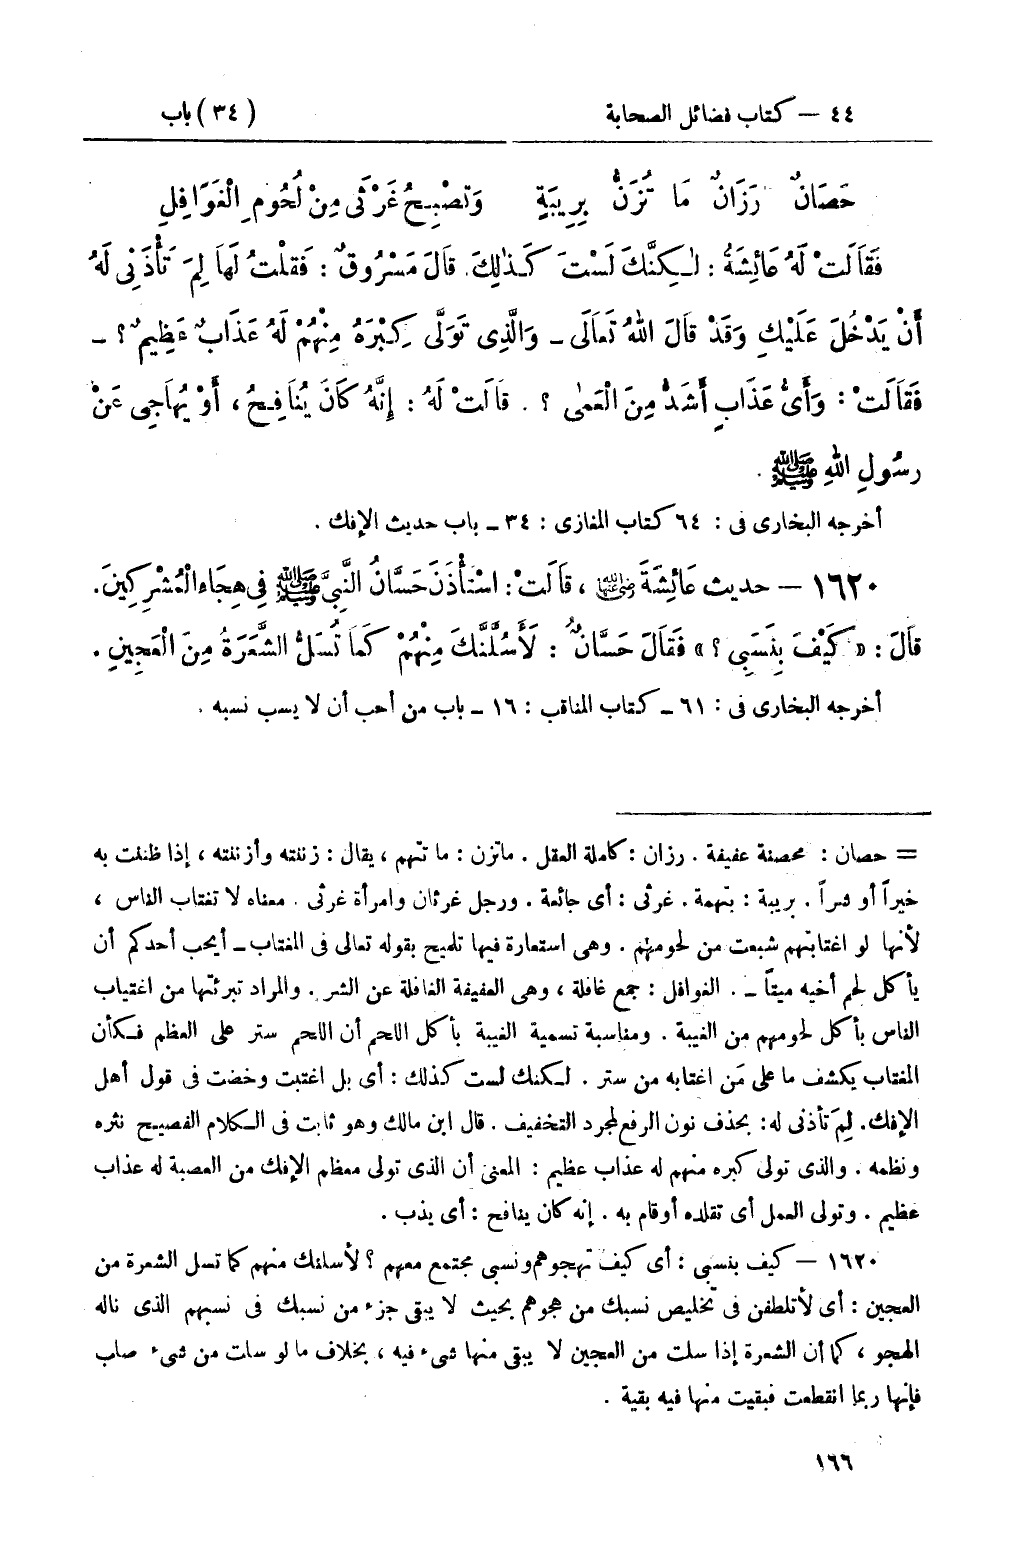 ٤٤ – كتاب فضائل الصحابة (٣٤) باب
حَصَانٌ رَزَانٌ مَا تُزَنُّ بِرِيبَةٍ وَتُصْبِحُ غَرْثَى مِنْ لُحُومِ الْغَوَافِلِ
فَقَالَتْ لَهُ عَائِشَةُ : لٰكِنَّكَ لَسْتَ كَذٰلِكَ. قَالَ مَسْرُوقٌ : فَقُلْتُ لَهَا لِمَ تَأْذَنِى لَهُ
أَنْ يَدْخُلَ عَلَيْكِ وَقَدْ قَالَ اللهُ تَعَالَى ـ وَالَّذِى تَوَلَّى كِبْرَهُ مِنْهُمْ لَهُ عَذَابٌ عَظِيمٌ ؟ ـ
فَقَالَتْ : وَأَىُّ عَذَابٍ أَشَدُّ مِنَ الْعَمٰى ؟ . قَالَتْ لَهُ : إِنَّهُ كَانَ يُنَافِحُ ، أَوْ يُهَاجِى عَنْ
رسُولِ اللهِ ﷺ .
أخرجه البخارى فى : ٦٤ كتاب المغازى : ٣٤ ـ باب حديث الإفك .
١٦٢٠ – حديث عَائِشَةَ رضي الله عنها ، قَالَتْ : اسْتَأْذَنَ حَسَّانُ النَّبِىَّ ﷺ فِى هِجَاءِ الْمُشْرِكِينَ.
قَالَ : « كَيْفَ بِنَسَبِى ؟ » فَقَالَ حَسَّانُ : لَأَسُلَّنَّكَ مِنْهُمْ كَمَا تُسَلُّ الشَّعَرَةُ مِنَ الْعَجِينِ .
أخرجه البخارى فى : ٦١ ـ كتاب المناقب : ١٦ ـ باب من أحب أن لا يسب نسبه .
= حصان : محصنة عفيفة . رزان : كاملة العقل . ماتزن : ما تتهم ، يقال : زننته وأزننته ، إذا ظننت به
خيراً أو شراً . بريبة : بتهمة . غرثى : أى جائعة . ورجل غرثان وامرأة غرثى . معناه لا تغتاب الناس ،
لأنها لو اغتابتهم شبعت من لحومهم . وهى استعارة فيها تلميح بقوله تعالى فى المغتاب ـ أيحب أحدكم أن
يأكل لحم أخيه ميتاً ـ . الغوافل : جمع غافلة ، وهى العفيفة الغافلة عن الشر . والمراد تبرئتها من اغتياب
الناس بأكل لحومهم من الغيبة . ومناسبة تسمية الغيبة بأكل اللحم أن اللحم ستر على العظم فكأن
المغتاب يكشف ما على مَن اغتابه من ستر . لكنك لست كذلك : أى بل اغتبت وخضت فى قول أهل
الإفك. لِمَ تأذنى له: بحذف نون الرفع لمجرد التخفيف . قال ابن مالك وهو ثابت فى الكلام الفصيح نثره
ونظمه . والذى تولى كبره منهم له عذاب عظيم : المعنى أن الذى تولى معظم الإفك من العصبة له عذاب
عظيم . وتولى العمل أى تقلده أوقام به . إنه كان ينافح : أى يذب .
١٦٢٠ – كيف بنسبى : أى كيف تهجوهم ونسبى مجتمع معهم ؟ لأسلنك منهم كما تسل الشعرة من
العجين : أى لأتلطفن فى تخليص نسبك من هجوهم بحيث لا يبقى جزء من نسبك فى نسبهم الذى ناله
الهجو ، كما أن الشعرة إذا سلت من العجين لا يبقى منها شىء فيه ، بخلاف ما لو سلت من شىء صلب
فإنها ربما انقطعت فبقيت منها فيه بقية .
١٦٦